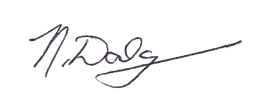 N. Daly